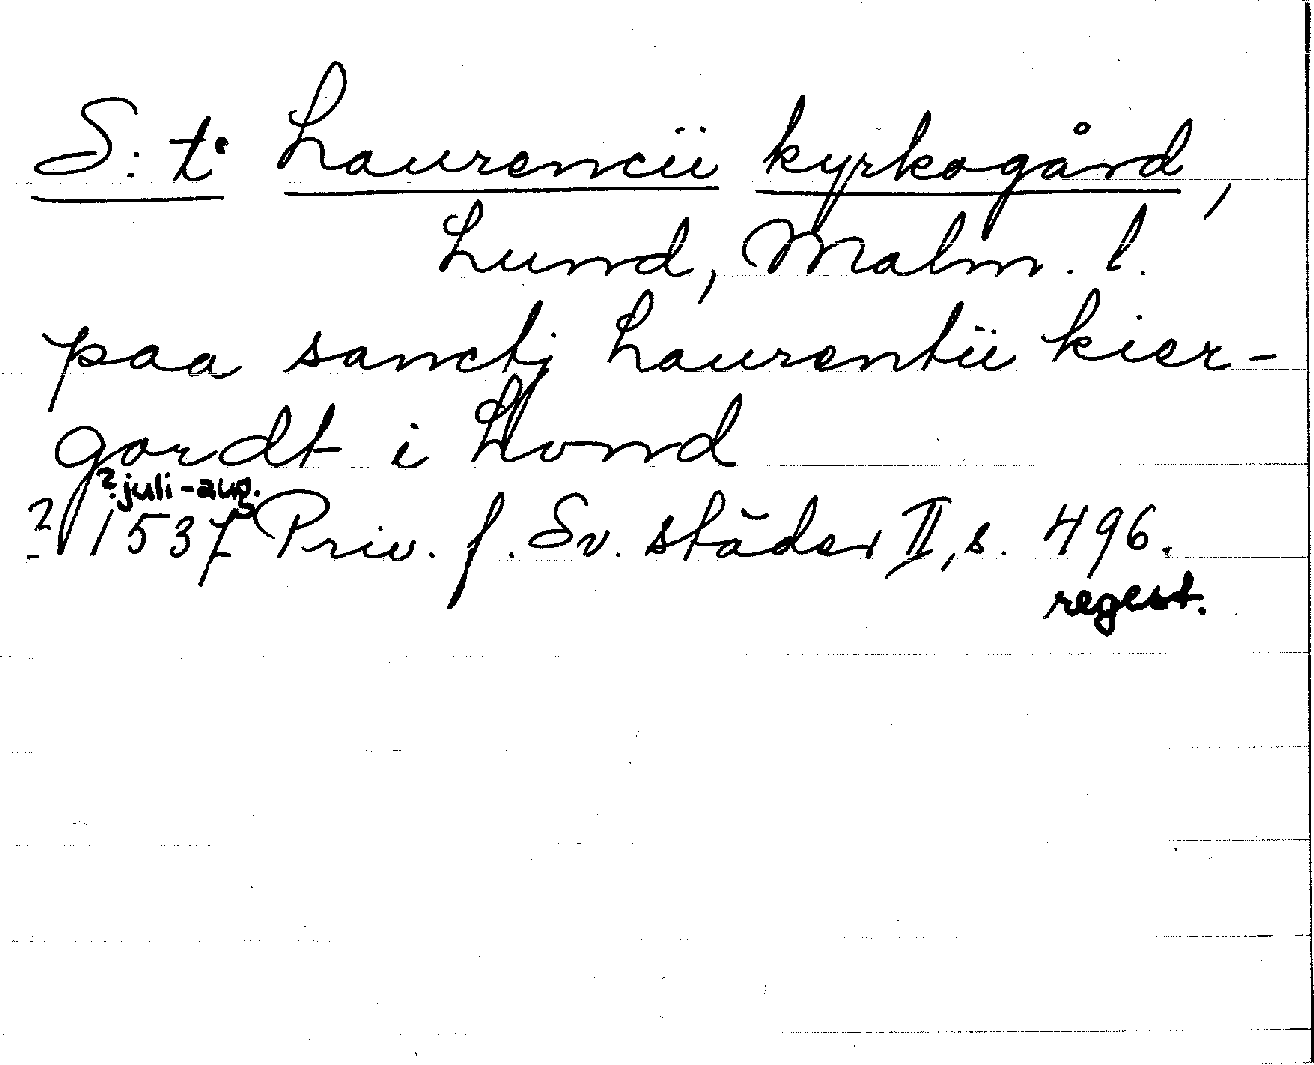 S:te Laurencii kyrkogård,
Lund, Malm. l.
paa sanctj Laurentii kier-
gordt i Lvnd
?juli-aug.
? 1537 Priv. f. Sv. städer II, s. 496.
regest.